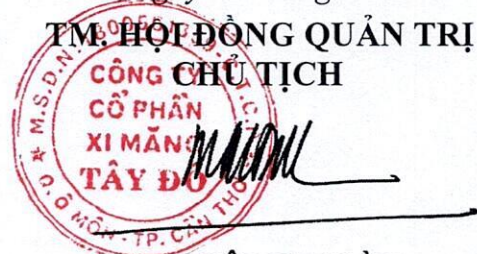 TM. HỘI ĐỒNG QUẢN TRỊ
CHỦ TỊCH
CÔNG TY
CỔ PHẦN
XI MĂNG
TÂY ĐÔ
M.S.D.N
Q. Ô MÔN - TP. CẦN THƠ